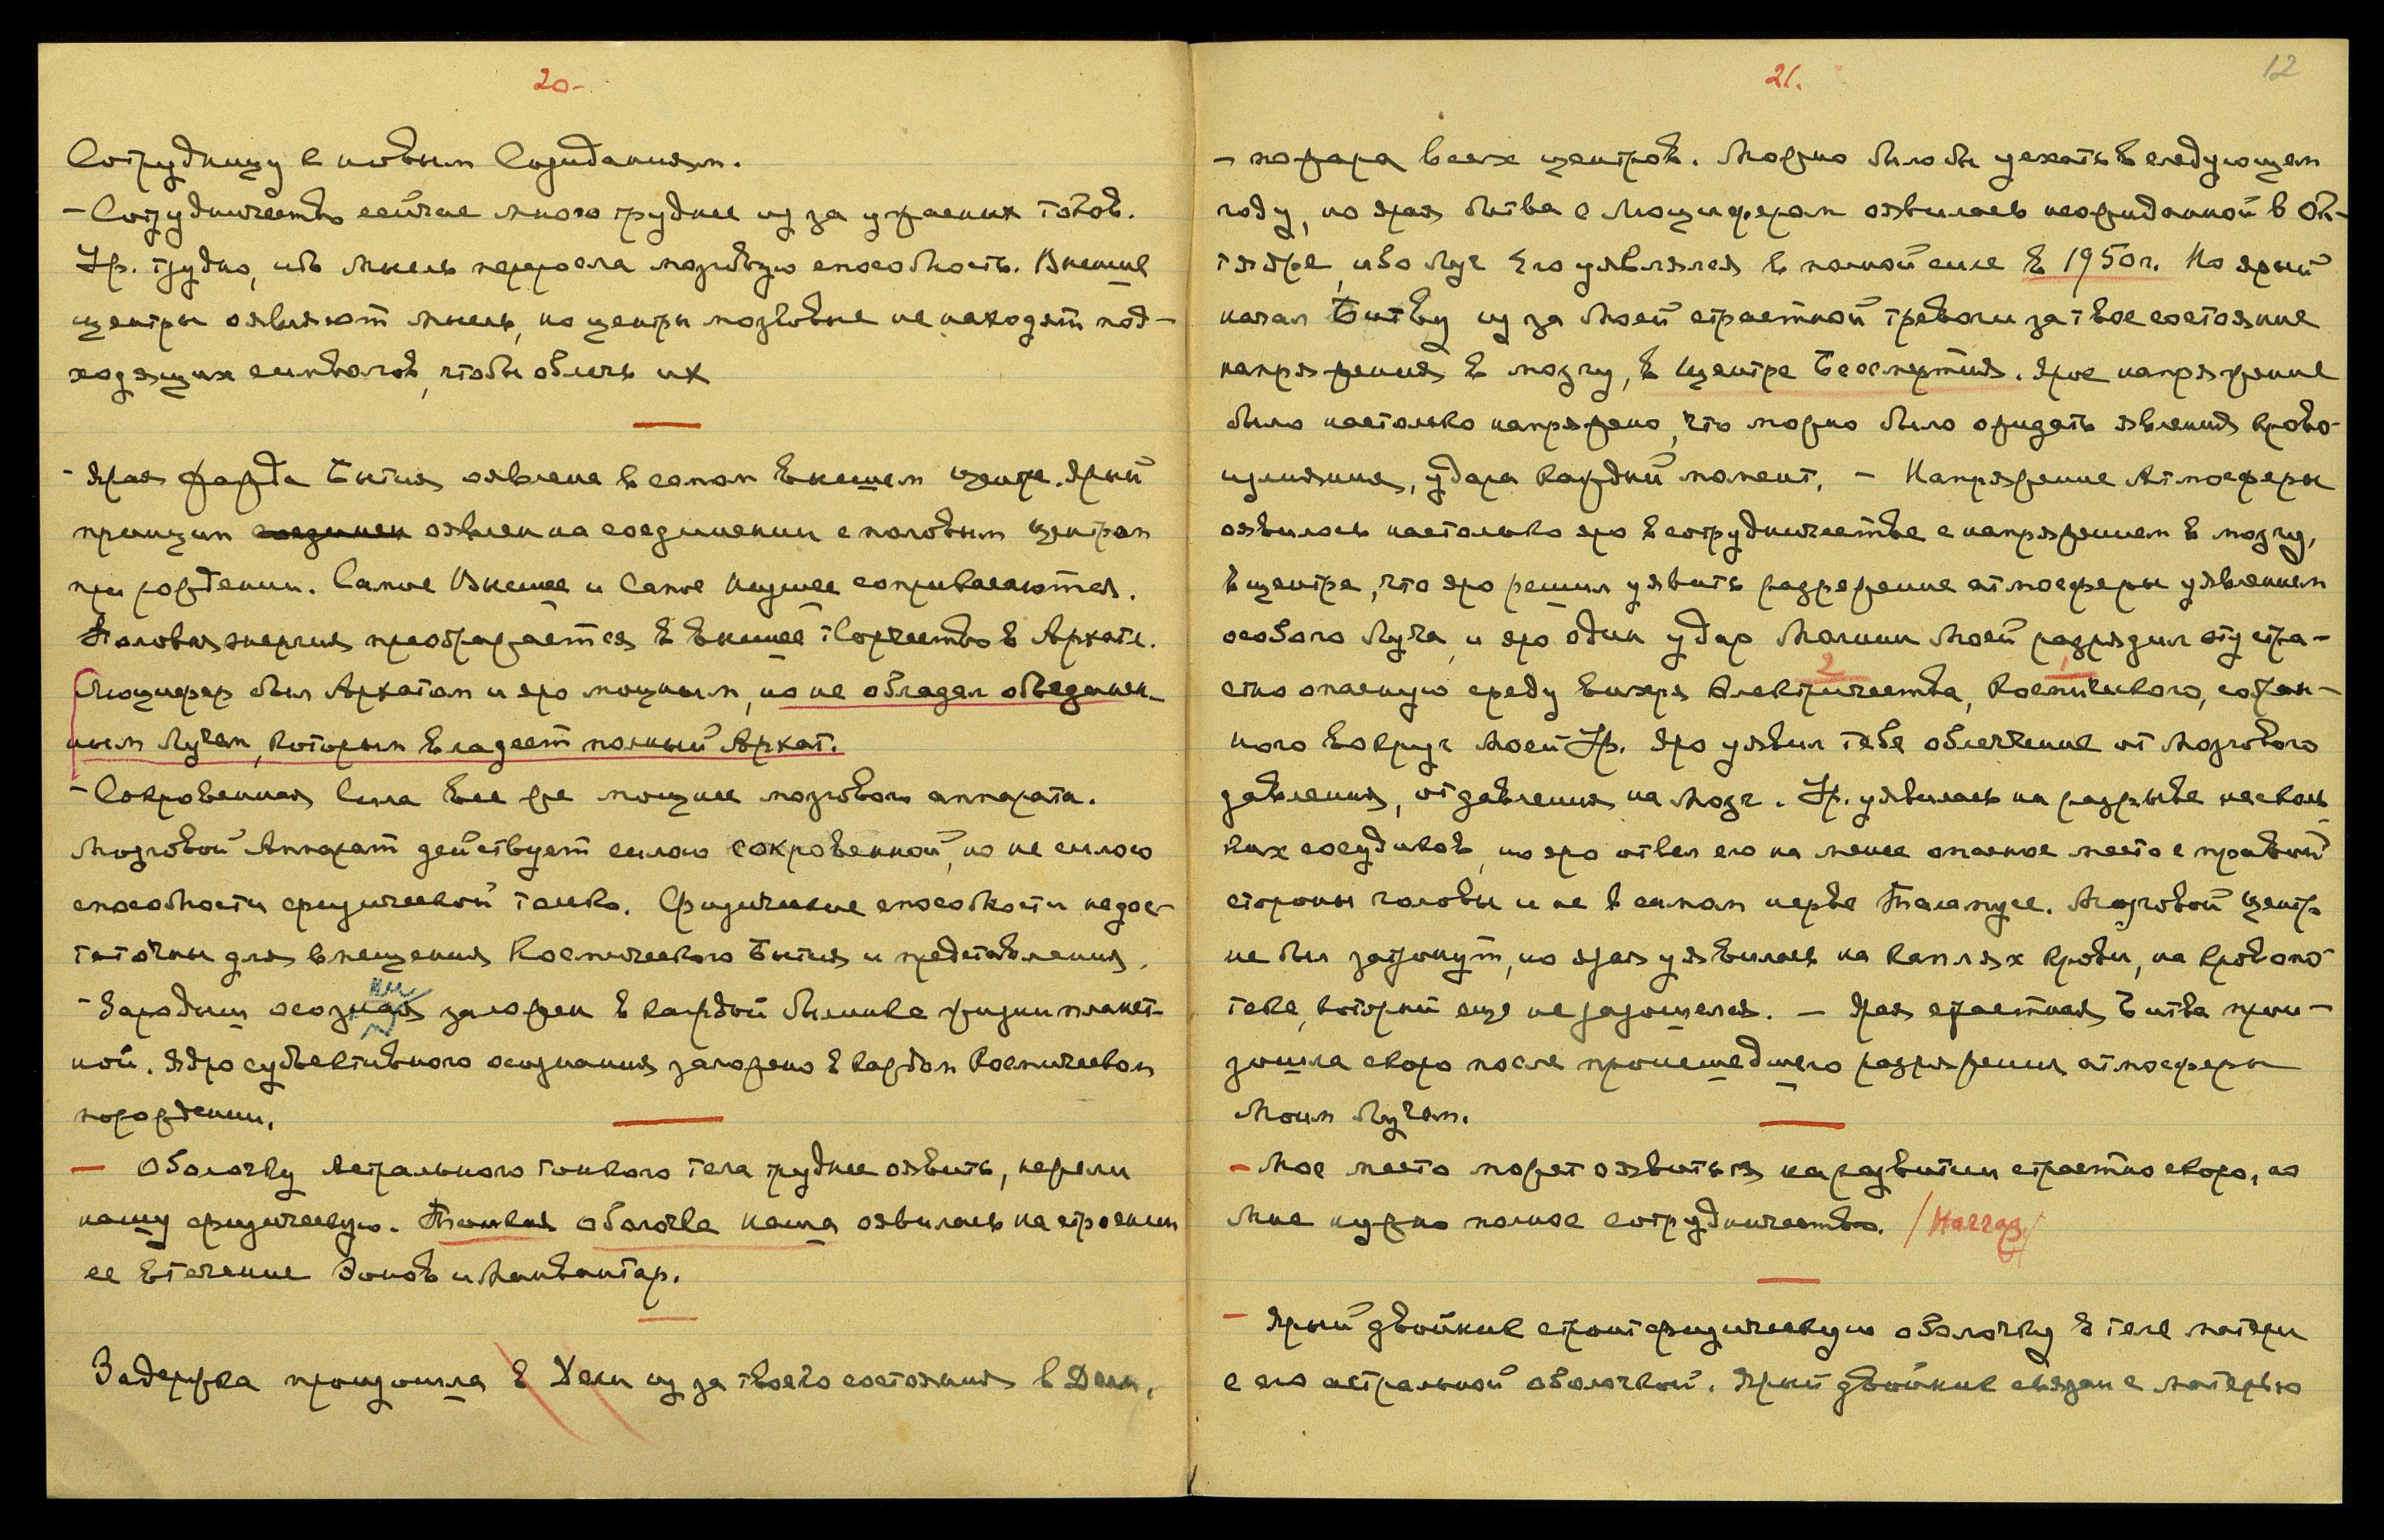 20-
Сотрудницу к новым Созиданиям.
- Сотрудничество сейчас много труднее из за ужасных токов.
Ур. трудно, ибо мысль переросла мозговую способность. Высшие
центры оявляют мысль, но центры мозговые не находят под-
ходящих символов, чтобы облечь их
- Ярая жажда Бытия оявлена в самом высшем центре. Ярый
принцип соединен оявлен на соединении с половым центром
при рождении. Самое Высшее и Самое Низшее соприкасаются.
Половая энергия преображается в высшее творчество в Архате.
Люцифер был Архатом и яро мощным, но не обладал объединен-
ным Лучем, которым владеет полный Архат.
- Сокровенная Сила все же мощнее мозгового аппарата.
Мозговой Аппарат действует силою сокровенной, но не силою
способности физической только. Физические способности недос-
таточны для вмещения Космического Бытия и представления.
- Зародыш осознания заложен в каждой былинке жизни планет-
ной. Ядро субъективного осознания заложено в каждом Космическом
порождении.
- Оболочку Астрального тонкого тела труднее оявить, нежели
нашу физическую. Тонкая оболочка наша оявилась на строении
ее в течение Эонов и Манвантар.
Задержка произошла в Дели из за твоего состояния в Дели,
21.
12
- пожара всех центров. Можно было бы уехать в следующем
году, но ярая битва с Люцифером оявилась неожиданной в Ок-
тябре, ибо Луч Его уявлялся в полной силе в 1950 г. Но ярый
начал Битву из за Моей страстной тревоги за твое состояние
напряжения в мозгу, в Центре Бессмертия. Ярое напряжение
было настолько напряжено, что можно было ожидать явления крово-
излияния, удара каждый момент. - Напряжение Атмосферы
оявилось настолько яро в сотрудничестве с напряжением в мозгу,
в центре, что яро решил уявить разрежение атмосферы уявлением
особого Луча, и яро один удар Молнии Моей разрядил эту стра-
2 1
стно опасную среду вихря Электричества, Космического, создан-
ного вокруг Моей Ур. Яро уявил тебе облегчение от Мозгового
давления, от давления на Мозг. Ур. уявилась на разрыве несколь
ких сосудиков, но яро отвел его на менее опасное место с правой
стороны головы и не в самом нерве Таламусе. Мозговой центр
не был затронут, но ярая уявилась на каплях крови, на кровопо-
теке, который еще не разошелся. - Ярая страстная Битва прои-
зошла скоро после происшедшего разряжения атмосферы
Моим Лучем.
- Мое место может оявиться на развитии страстно скоро, но
Мне нужно полное сотрудничество.
- Ярый двойник строит физическую оболочку в теле матери
с его астральной оболочкой. Ярый двойник связан с матерью